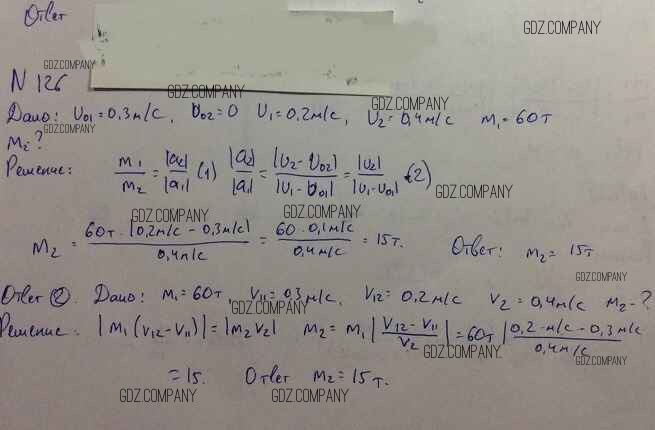 Ответ
GDZ.COMPANY
GDZ.COMPANY
N 126
GDZ.COMPANY
GDZ.COMPANY
Дано: υ₀₁ = 0,3 м/с, υ₀₂ = 0 υ₁ = 0,2 м/с, υ₂ = 0,4 м/с m₁ = 60т
GDZ.COMPANY
m₂ ?
Решение: m₁/m₂ = |a₂|/|a₁| (1) |a₂|/|a₁| = |υ₂ - υ₀₂|/|υ₁ - υ₀₁| = |υ₂|/|υ₁ - υ₀₁| (2)
GDZ.COMPANY
GDZ.COMPANY GDZ.COMPANY
m₂ = 60т · |0,2м/с - 0,3м/с|/0,4м/с = 60 · 0,1м/с/0,4м/с = 15т. Ответ: m₂ = 15т
GDZ.COMPANY
Ответ ②. Дано: m₁ = 60т, V₁₁ = 0,3 м/с, V₁₂ = 0,2 м/с V₂ = 0,4м/с m₂ - ?
GDZ.COMPANY
Решение: |m₁(V₁₂ - V₁₁)| = |m₂V₂| m₂ = m₁ |V₁₂ - V₁₁/V₂| = 60т |0,2 м/с - 0,3 м/с/0,4 м/с
GDZ.COMPANY GDZ.COMPANY
= 15. Ответ m₂ = 15т.
GDZ.COMPANY GDZ.COMPANY